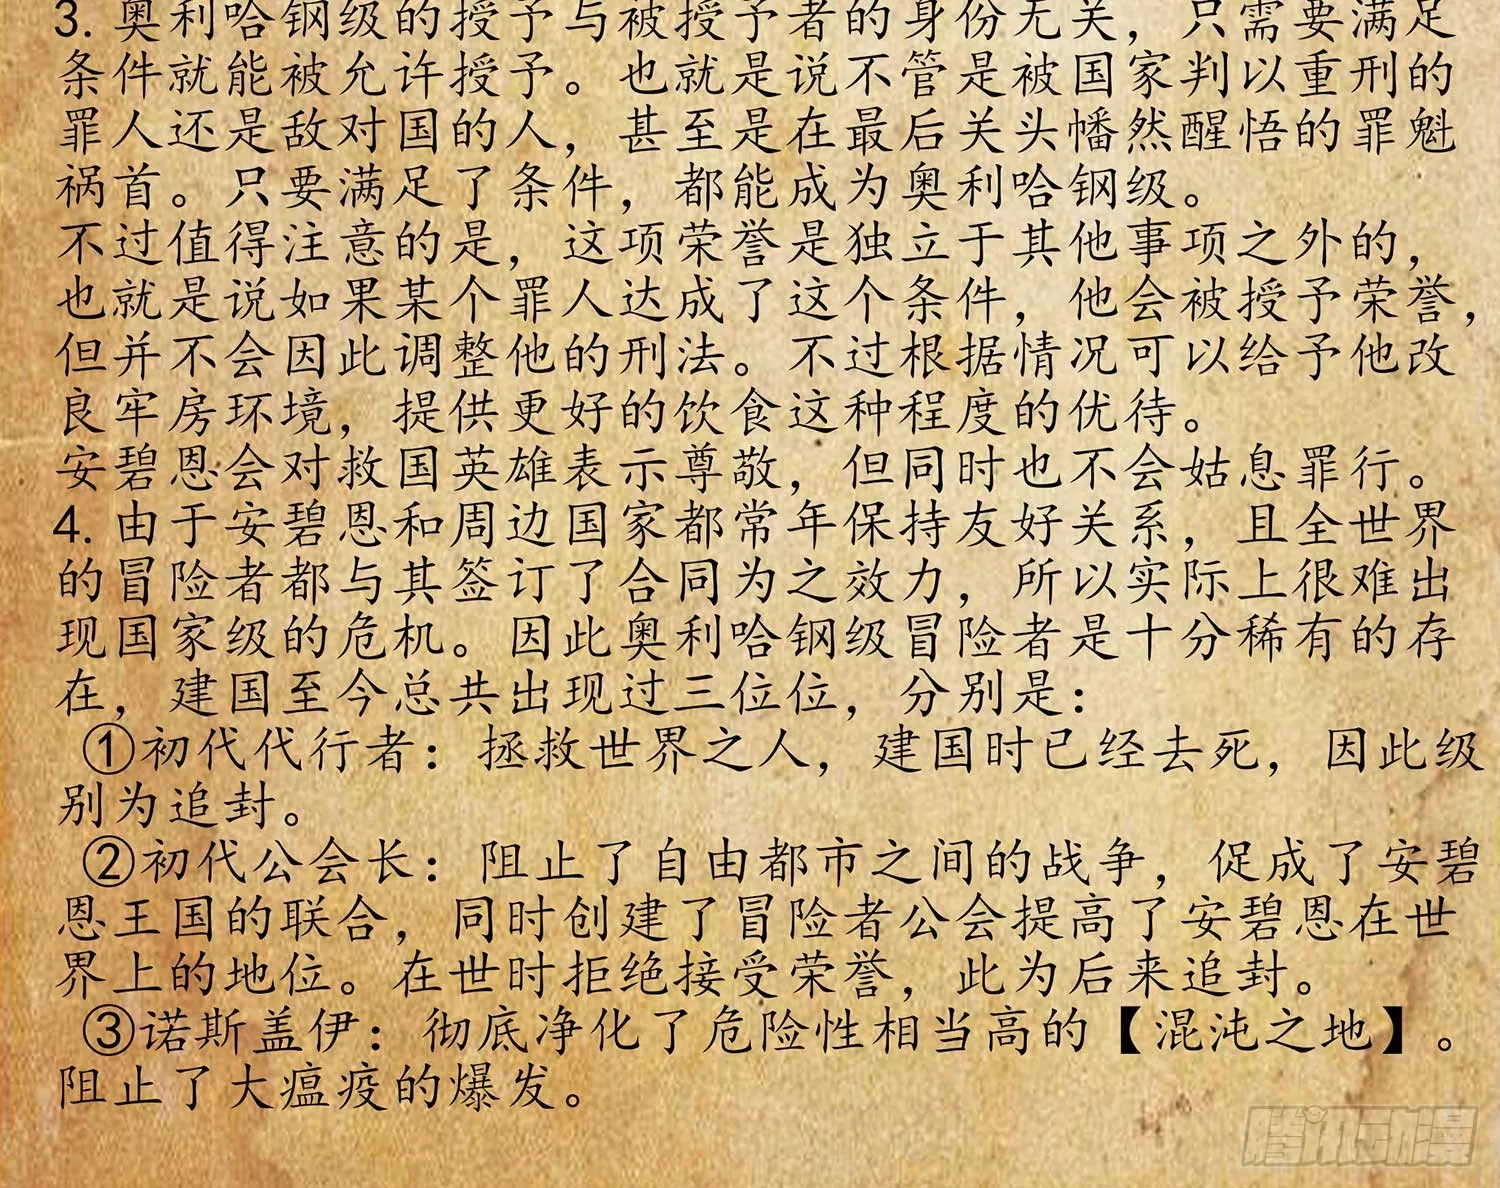 3. 奥利哈钢级的授予与被授予者的身份无关，只需要满足
条件就能被允许授予。也就是说不管是被国家判以重刑的
罪人还是敌对国的人，甚至是在最后关头幡然醒悟的罪魁
祸首。只要满足了条件，都能成为奥利哈钢级。
不过值得注意的是，这项荣誉是独立于其他事项之外的，
也就是说如果某个罪人达成了这个条件，他会被授予荣誉，
但并不会因此调整他的刑法。不过根据情况可以给予他改
良牢房环境，提供更好的饮食这种程度的优待。
安碧恩会对救国英雄表示尊敬，但同时也不会姑息罪行。
4. 由于安碧恩和周边国家都常年保持友好关系，且全世界
的冒险者都与其签订了合同为之效力，所以实际上很难出
现国家级的危机。因此奥利哈钢级冒险者是十分稀有的存
在，建国至今总共出现过三位位，分别是：
①初代代行者：拯救世界之人，建国时已经去死，因此级
别为追封。
②初代公会长：阻止了自由都市之间的战争，促成了安碧
恩王国的联合，同时创建了冒险者公会提高了安碧恩在世
界上的地位。在世时拒绝接受荣誉，此为后来追封。
③诺斯盖伊：彻底净化了危险性相当高的【混沌之地】。
阻止了大瘟疫的爆发。
腾讯动漫